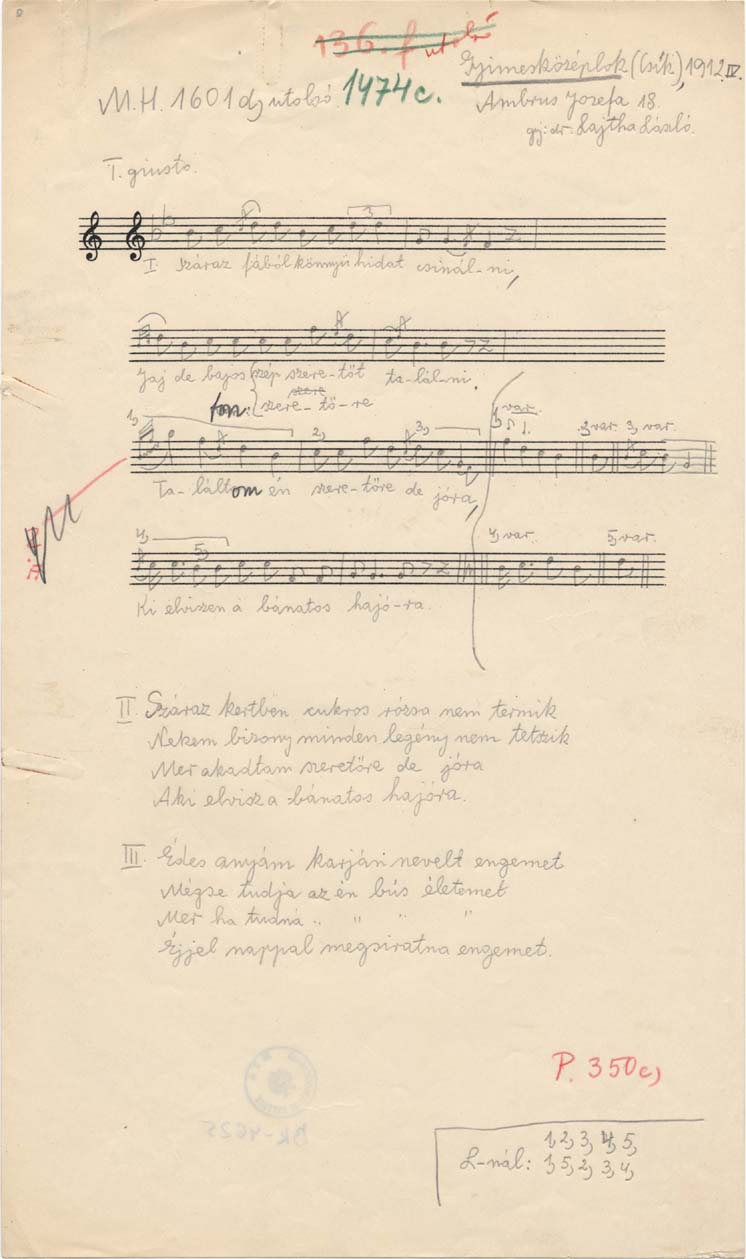 136. f utolsó
Gyimesközéplok (Csík), 1912. IV.
M.H. 1601 d, utolsó 1474c.
Ambrus Jozefa 18.
gy: dr. Lajtha László.
T. giusto.
3
I. Száraz fából könnyű hidat csinál-ni,
Jaj de bajos szép szere-tőt ta-lál-ni.
szere
szere-tő-re
1, 2, 3, 1, var. 2, var. 3, var.
Ta-láltom én szere-tőre de jóra,
4, 5, 4, var. 5, var.
Ki elviszen a bánatos hajó-ra.
II. Száraz kertben cukros rózsa nem termik
Nekem bizony minden legény nem tetszik
Mer akadtam szeretőre de jóra
Aki elvisz a bánatos hajóra.
III. Édes anyám karján nevelt engemet
Mégse tudja az én bús életemet
Mer ha tudná " " " "
Éjjel nappal megsiratna engemet.
P. 350c,
BR-4625
1, 2, 3, 4, 5,
L-nál: 1, 5, 2, 3, 4,